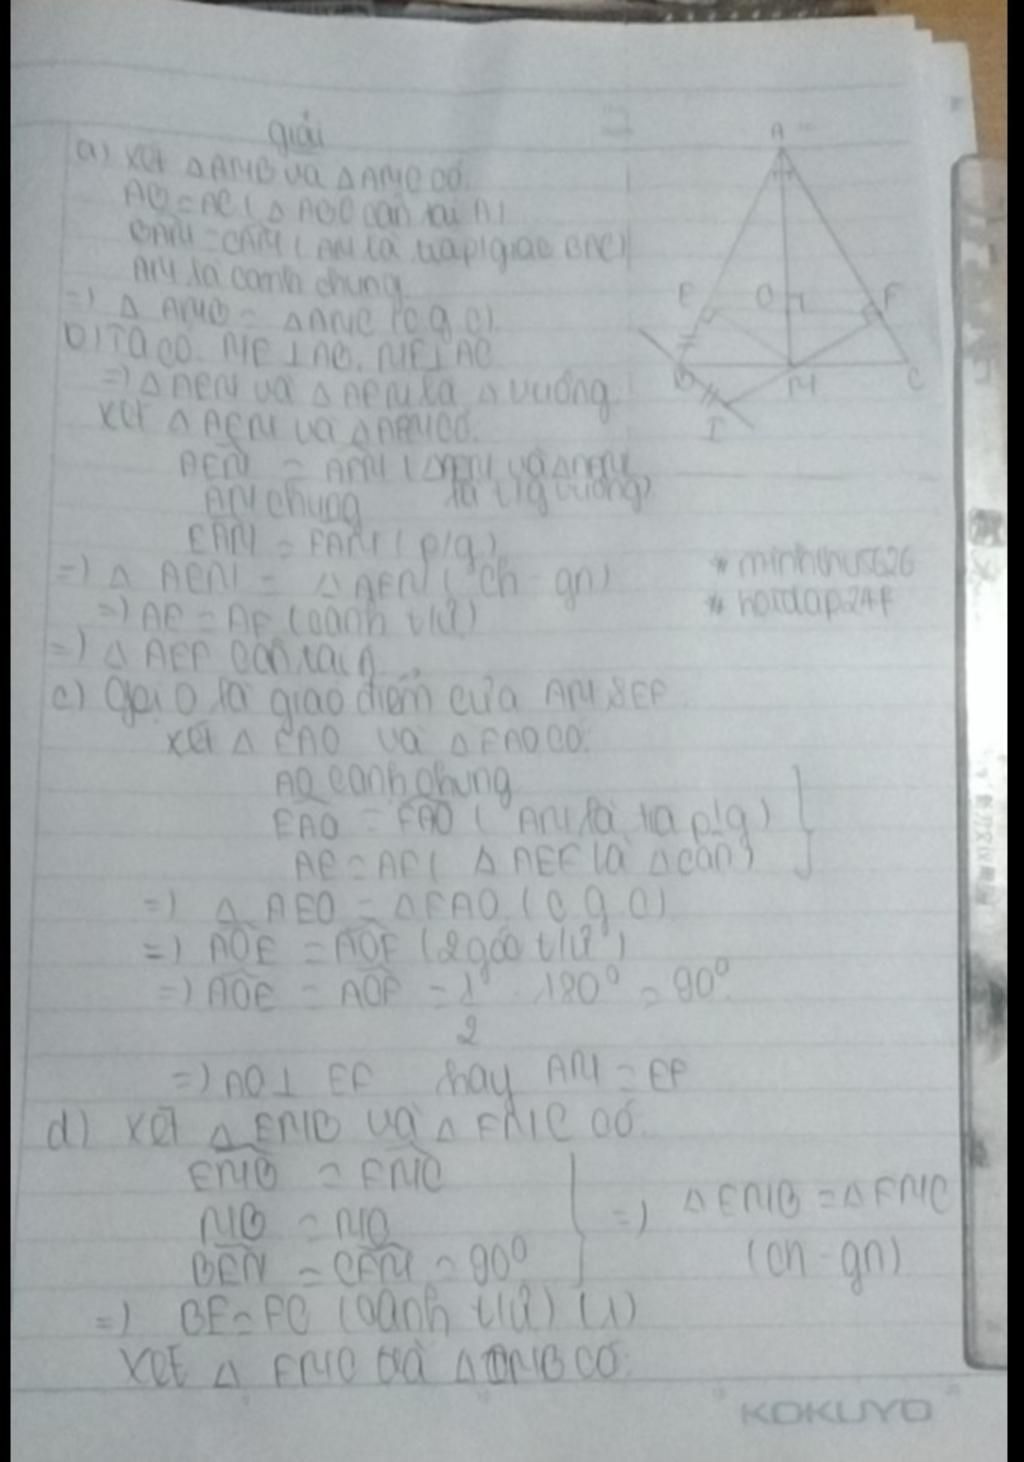 giải
a) xét △AMB và △AMC có.
AB = AC ( △ ABC cân tại A)
BAM = CAM ( AM là tia p/giác BAC)
AM là cạnh chung
=) △ AMB = △AMC (c g c).
b) Ta có. ME ⊥ AB, MF ⊥ AC
=) △ AEM và △ AFM là △ vuông
xét △ AEM và △AFM có.
AEM = AFM ( △AEM và △AFM
AM chung là t/g vuông)
EAM = FAM ( p/g)
=) △ AEM = △ AFM ( ch - gn)
=) AE = AF (cạnh t/ứ)
=) △ AEF cân tại A
* minhthu5626
# hoidap247
c) Gọi O là giao điểm của AM & EF
xét △ EAO và △ FAO có:
AO cạnh chung
EAO = FAO ( AM là tia p/g)
AE = AF ( △ AEF là △ cân)
=) △ AEO = △FAO (c g c)
=) AOE = AOF (2 góc t/ứ)
=) AOE = AOF = 1/2 . 180⁰ = 90⁰
=) AO ⊥ EF hay AM = EF
d) xét △ EMB và △ FMC có:
EMB = FMC
MB = MC =) △ EMB = △ FMC
BEM = CFM = 90⁰ (ch - gn)
=) BE = FC (cạnh t/ứ) (1)
xét △ FMC và △ IMB có:
A
E O F
B M C
I
KOKUYO